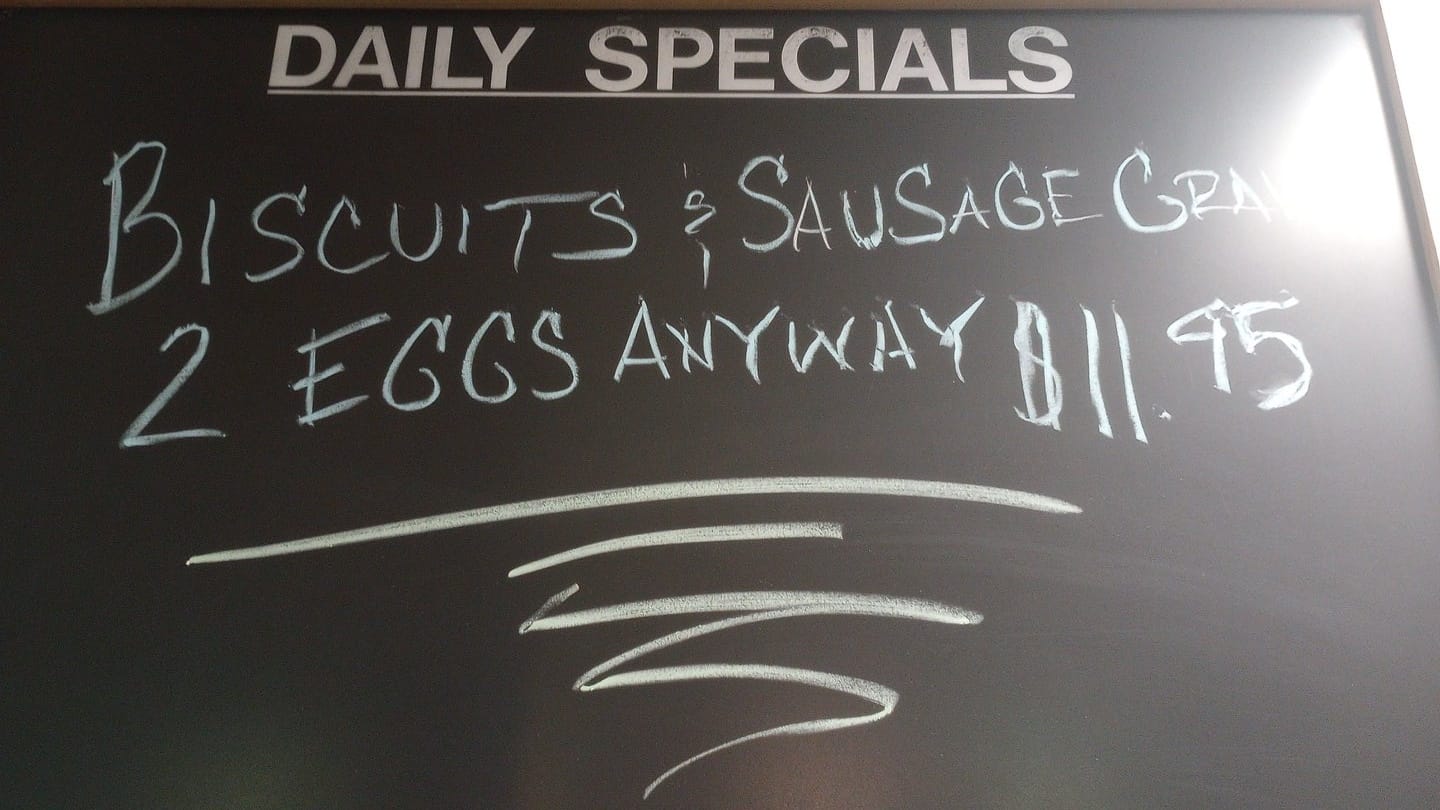 DAILY SPECIALS
BISCUITS & SAUSAGE GRA
2 EGGS ANYWAY $11.95